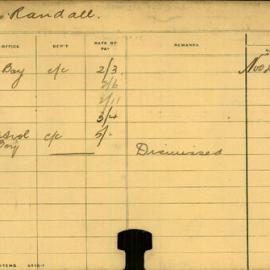 Randall.
OFFICE DEP'T RATE OF PAY REMARKS
Bay c/c 2/3
2/6
2/11
3/4
c/c 5/-
Boy Dismissed